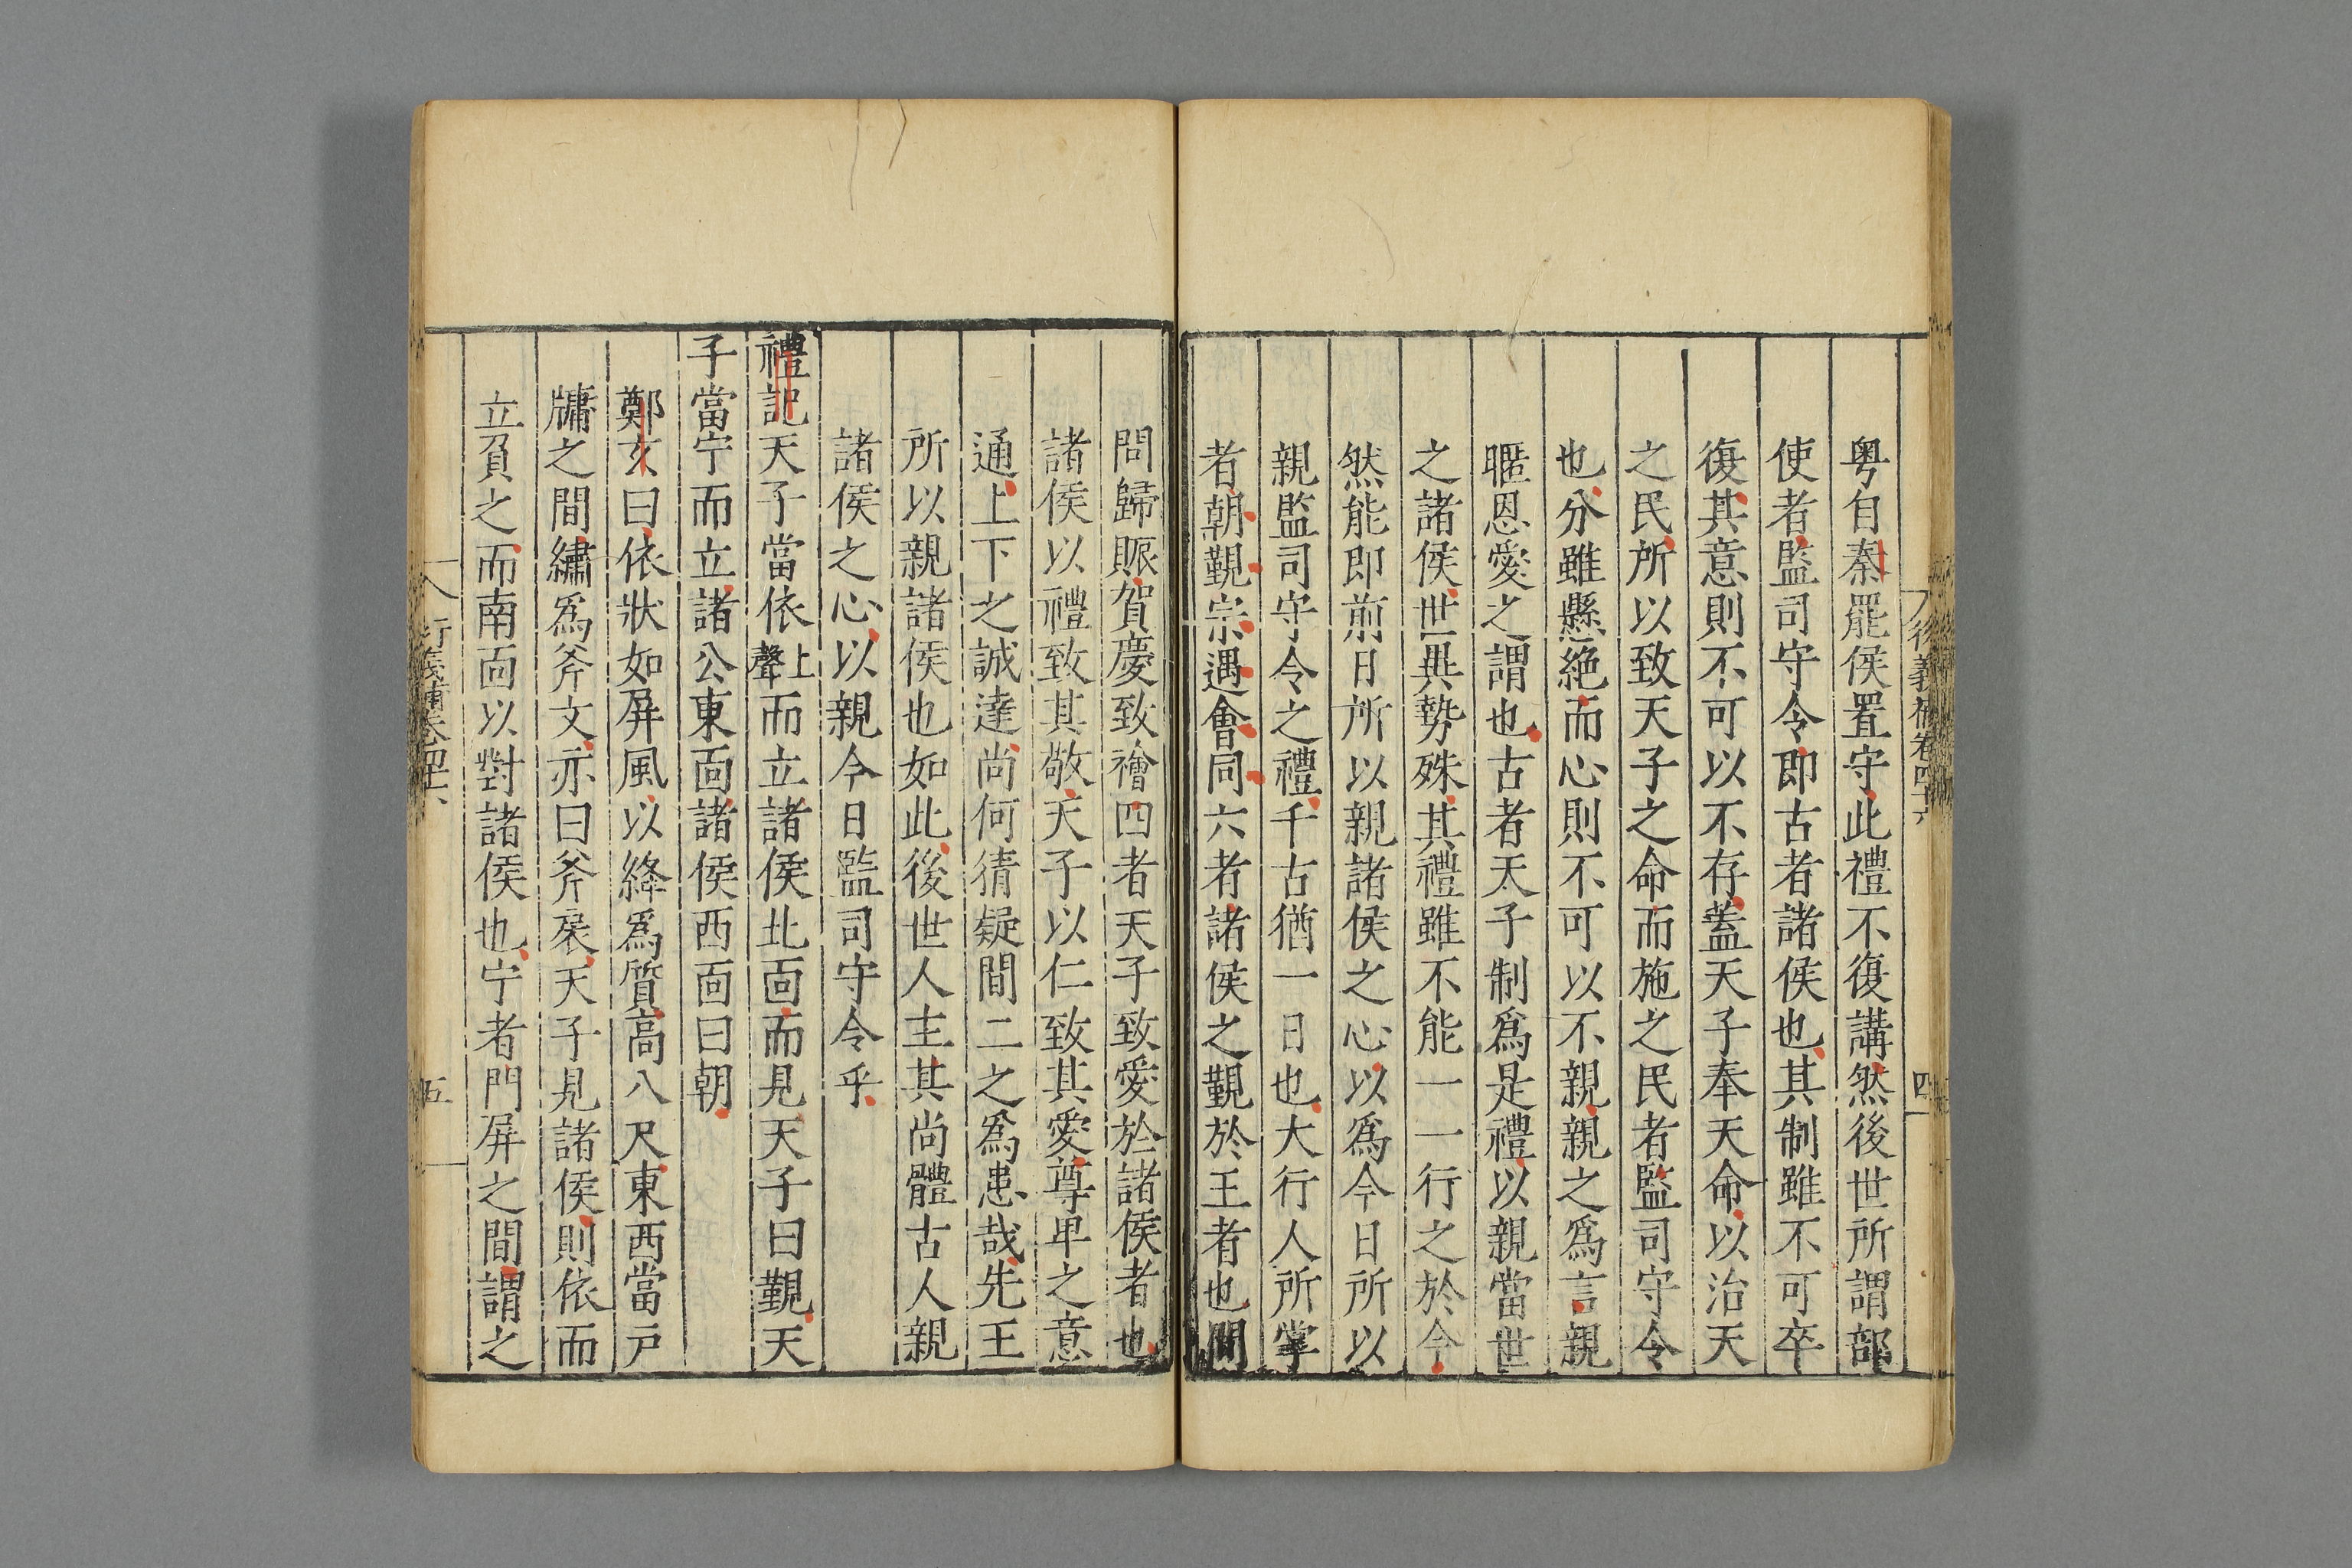 衍義補卷四十六
四
粤自秦罷侯置守此禮不復講然後世所謂部
使者監司守令即古者諸侯也其制雖不可卒
復其意則不可以不存蓋天子奉天命以治天
之民所以致天子之命而施之民者監司守令
也分雖懸絶而心則不可以不親親之為言親
暱恩愛之謂也古者天子制為是禮以親當世
之諸侯世異勢殊其禮雖不能一一行之於今
然能即前日所以親諸侯之心以為今日所以
親監司守令之禮千古猶一日也大行人所掌
者朝覲宗遇會同六者諸侯之覲於王者也間
問歸賑賀慶致禬四者天子致愛於諸侯者也
諸侯以禮致其敬天子以仁致其愛尊卑之意
通上下之誠達尚何猜疑間二之為患哉先王
所以親諸侯也如此後世人主其尚體古人親
諸侯之心以親今日監司守令乎
禮記天子當依上聲而立諸侯北面而見天子曰覲天
子當宁而立諸公東面諸侯西面曰朝
鄭玄曰依狀如屏風以絳為質高八尺東西當戶
牖之間繡為斧文亦曰斧扆天子見諸侯則依而
立負之而南面以對諸侯也宁者門屏之間謂之
衍義補卷四十六
五